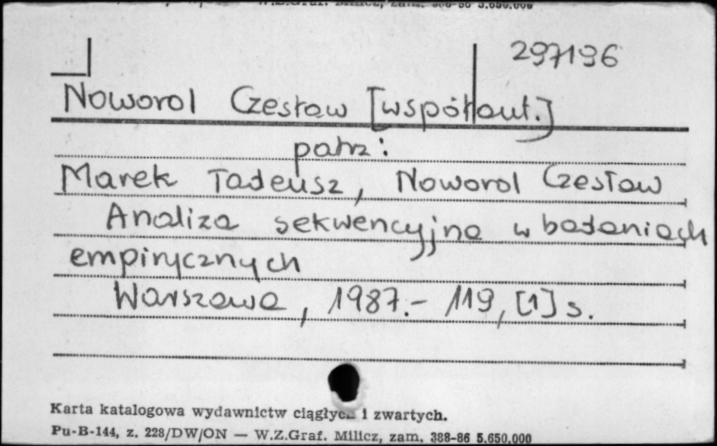 W.Z.Graf. Milicz, zam. 388-86 5.650.000
297196
Noworol Czesław [współaut.]
patrz:
Marek Tadeusz, Noworol Czesław
Analiza sekwencyjna w badaniach
empirycznych
Warszawa, 1987.- 119, [1] s.
Karta katalogowa wydawnictw ciągłych i zwartych.
Pu-B-144, z. 228/DW/ON — W.Z.Graf. Milicz, zam. 388-86 5.650.000